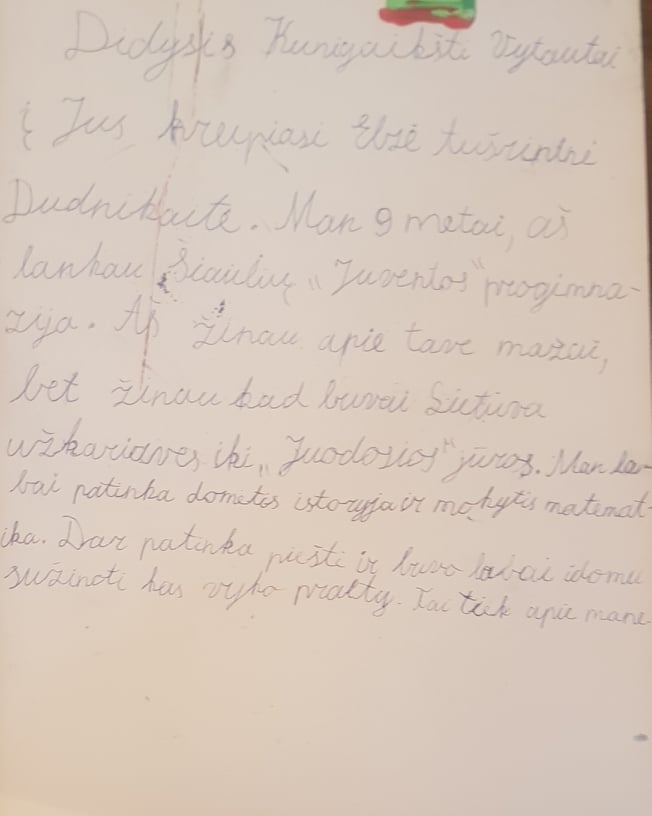 Didysis Kunigaikšti Vytautai
į Jus kreipiasi Elzė
Dudnikaitė. Man 9 metai, aš
lankau Šiaulių „Juventos" progimna-
zija. Aš žinau apie tave mažai,
bet žinau kad buvai Lietuva
užkariavęs iki „Juodosios" jūros. Man la-
bai patinka dometis istoryja ir mokytis matemat-
ika. Dar patinka piešti ir buvo labai idomu
sužinoti kas vyko praity. Tai tiek apie mane.